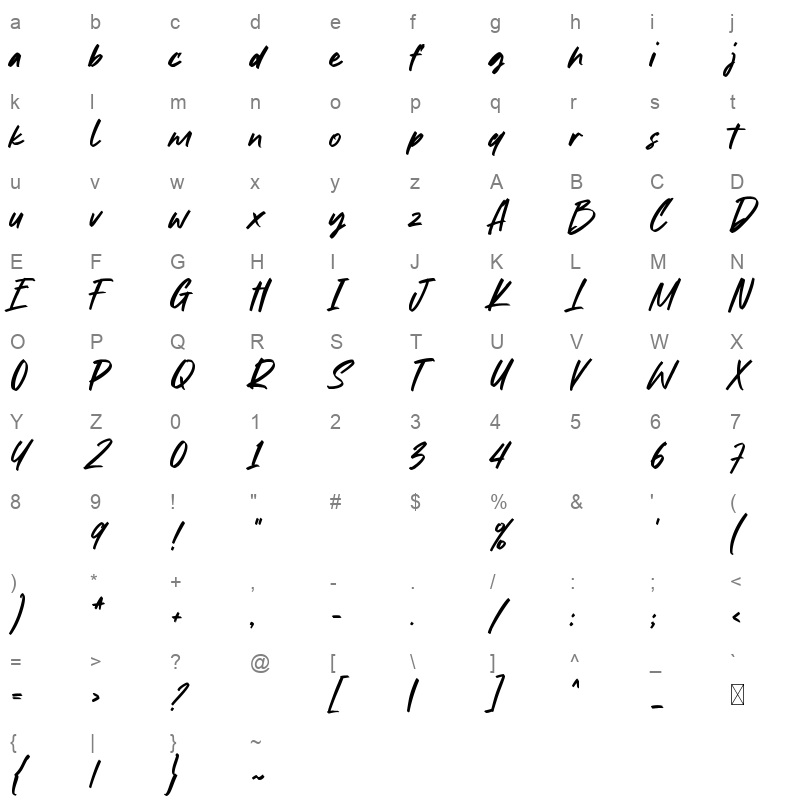 a b c d e f g h i j
a b c d e f g h i j
k l m n o p q r s t
k l m n o p q r s t
u v w x y z A B C D
u v w x y z A B C D
E F G H I J K L M N
E F G H I J K L M N
O P Q R S T U V W X
O P Q R S T U V W X
Y Z 0 1 2 3 4 5 6 7
Y Z 0 1 3 4 6 7
8 9 ! " # $ % & ' (
9 ! " % ' (
) * + , - . / : ; <
) * + , - . / : ; <
= > ? @ [ \ ] ^ _ `
= > ? [ \ ] ^ _
{ | } ~
{ | } ~